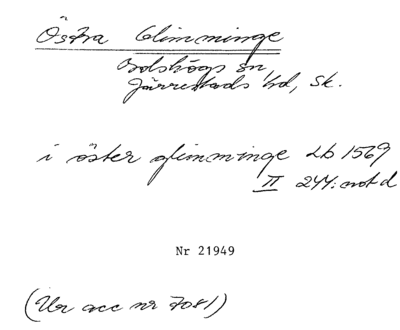 Östra Glimminge
Bolshögs sn,
Järrestads hd, Sk.
i öster glimminge Lb 1569
II 244: not d
Nr 21949
(Ur acc nr 7081)